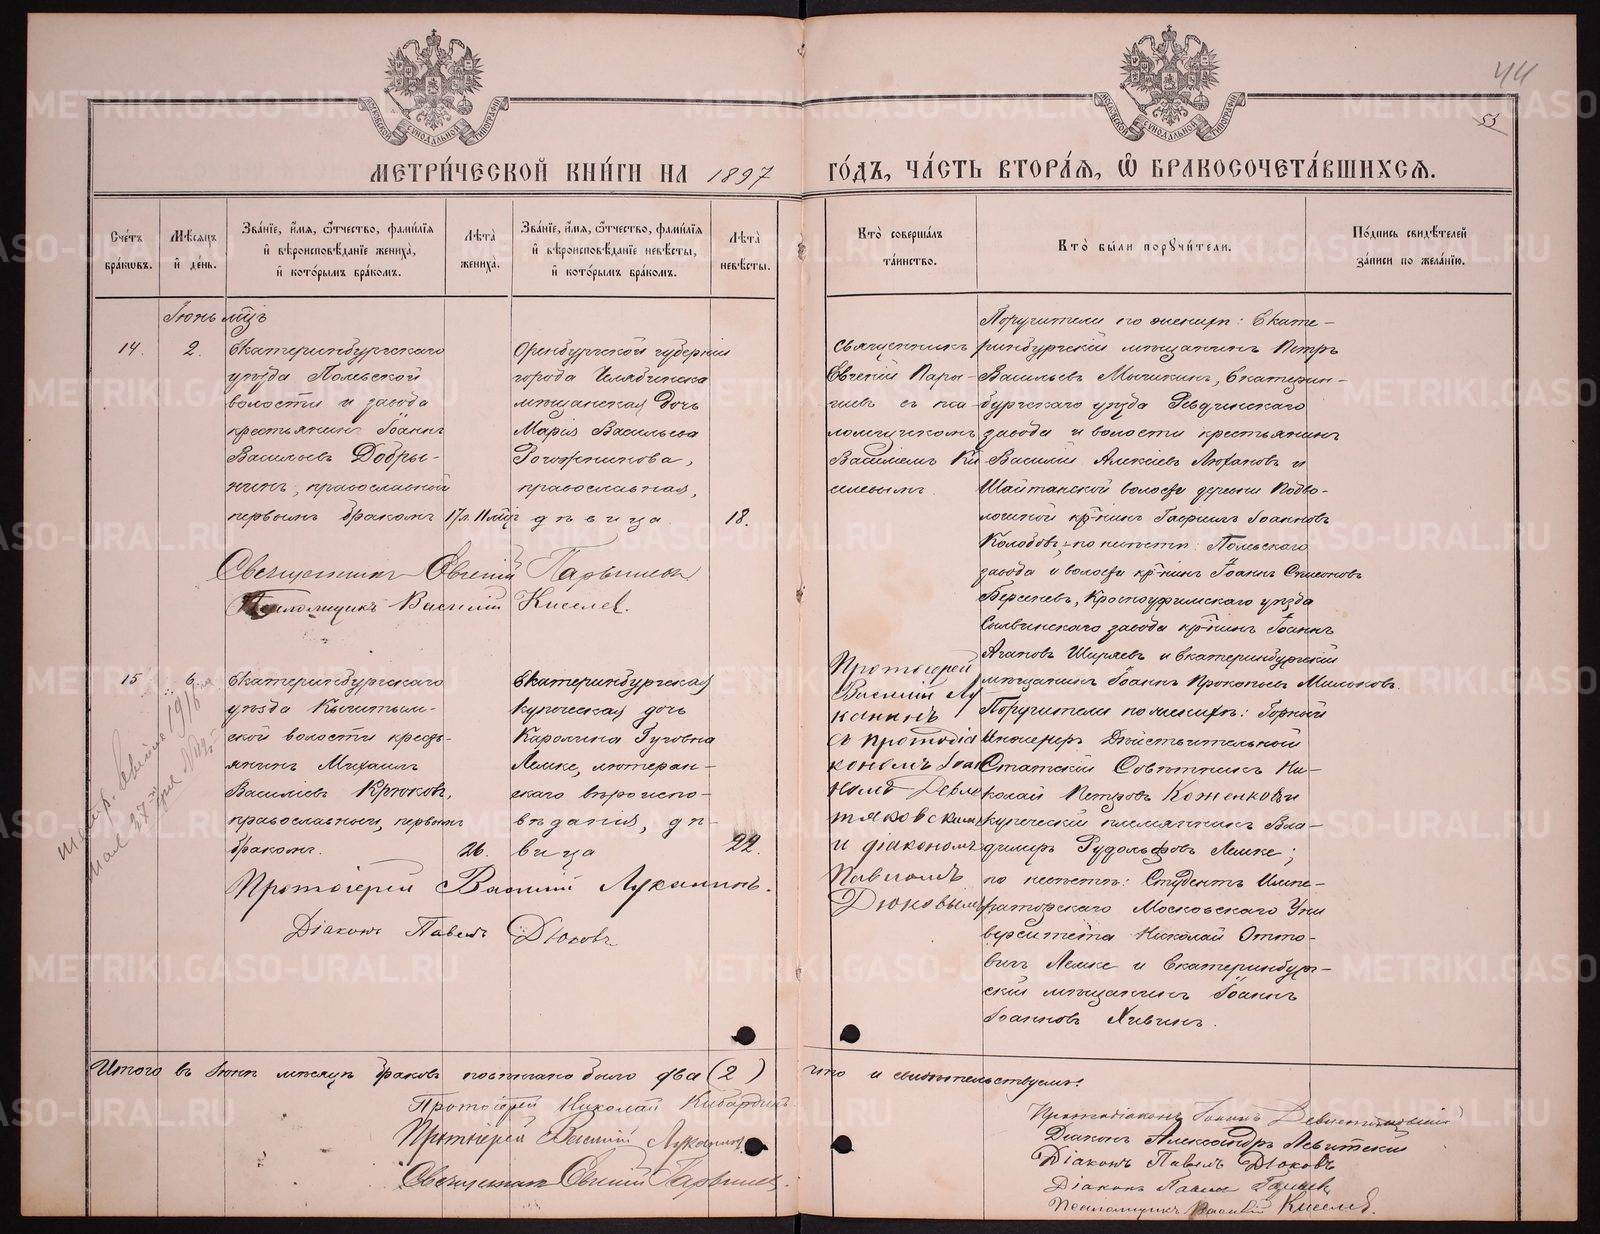 44
53
МОСКОВСКОЙ СѴНОДАЛЬНОЙ ТИПОГРАФІИ
МОСКОВСКОЙ СѴНОДАЛЬНОЙ ТИПОГРАФІИ
МЕТРИ́ЧЕСКОЙ КНИ́ГИ НА 1897 ГО́ДЪ, ЧА́СТЬ ВТОРА́Я, Ѡ БРАКОСОЧЕТА́ВШИХСЯ.
Сче́тъ
бра́ковъ.
Мѣ́сяцъ
и҆ де́нь.
Зва́нїе, и҆́мя, ѻ҆́тчество, фами́лїя
и҆ вѣроисповѣ́данїе жениха̀,
и҆ кото́рымъ бра́комъ.
Лѣта̀
жениха̀.
Зва́нїе, и҆́мя, ѻ҆́тчество, фами́лїя
и҆ вѣроисповѣ́данїе невѣ́сты,
и҆ кото́рымъ бра́комъ.
Лѣта̀
невѣ́сты.
Кто̀ соверша́лъ
та́инство.
Кто̀ бы́ли порꙋчи́тели.
По́дпись свидѣ́телей
за́писи по жела́нїю.
Іюнь мцъ
14.
2.
Екатеринбургскаго
уѣзда Полевской
волости и завода
крестьянинъ Іоаннъ
Васильевъ Добры-
нинъ, православной
первымъ бракомъ
17 л. 11 мцъ
Оренбургской губерніи
города Челябинска
мѣщанская дочь
Марія Васильева
Рогожникова,
православная,
дѣвица
18.
Священникъ
Евгеній Пары-
шевъ съ пса-
ломщикомъ
Василіемъ Ки
селевымъ.
Поручители по женихѣ: Екате-
ринбургскій мѣщанинъ Петръ
Васильевъ Мычикинъ, Екатерин-
бургскаго уѣзда Ревдинскаго
завода и волости крестьянинъ
Василій Алексѣевъ Люхановъ и
Шайтанской волости деревни Подво-
лошной кр-нинъ Гавріилъ Іоанновъ
Колобовъ;-по невѣстѣ: Полевскаго
завода и волости кр-нинъ Іоаннъ Симоновъ
Берсеневъ, Красноуфимскаго уѣзда
Сылвинскаго завода кр-нинъ Іоаннъ
Агаповъ Ширяевъ и Екатеринбургскій
мѣщанинъ Іоаннъ Прокопьевъ Мильковъ.
Священникъ Евгеній Парышевъ
Псаломщикъ Василій Киселев.
15
6
Екатеринбургскаго
уѣзда Кыштым-
ской волости кресть-
янинъ Михаилъ
Василіевъ Крюковъ,
православный, первымъ
бракомъ.
26.
Екатеринбургская
купеческая дочь
Каролина Гуговна
Лемке, лютеран-
скаго вѣроиспо-
вѣданія, дѣ-
вица
22.
Протоіерей
Василій Лу
канинъ
съ протодіа
кономъ Іоан
номъ Девле
тяковскимъ
и діакономъ
Павломъ
Дюковымъ
Поручители по женихѣ: Горный
Инженеръ Дѣйствительный
Статскій Совѣтникъ Ни-
колай Петровъ
купеческій племянникъ Вла-
димиръ Рудольфовъ Лемке;
по невѣстѣ: Студентъ Импе-
раторскаго Московскаго Уни
верситета Николай Отто-
вичъ Лемке и Екатеринбург-
скій мѣщанинъ Іоаннъ
Іоанновъ Хивинъ.
Протоіерей Василій Луканинъ.
Діаконъ Павелъ Дюковъ
Итого въ Іюнѣ мѣсяцѣ браковъ повѣнчано было два (2) что и свидѣтельствуемъ:
Протоіерей Николай Кибардинъ
Протоіерей Василій Луканинъ
Священникъ Евгеній Парышевъ
Протодіаконъ Іоаннъ
Діаконъ Александръ Левитскій
Діаконъ Павелъ Дюковъ
Діаконъ Павелъ
Псаломщикъ Василій Киселев.
METRIKI.GASO-URAL.RU